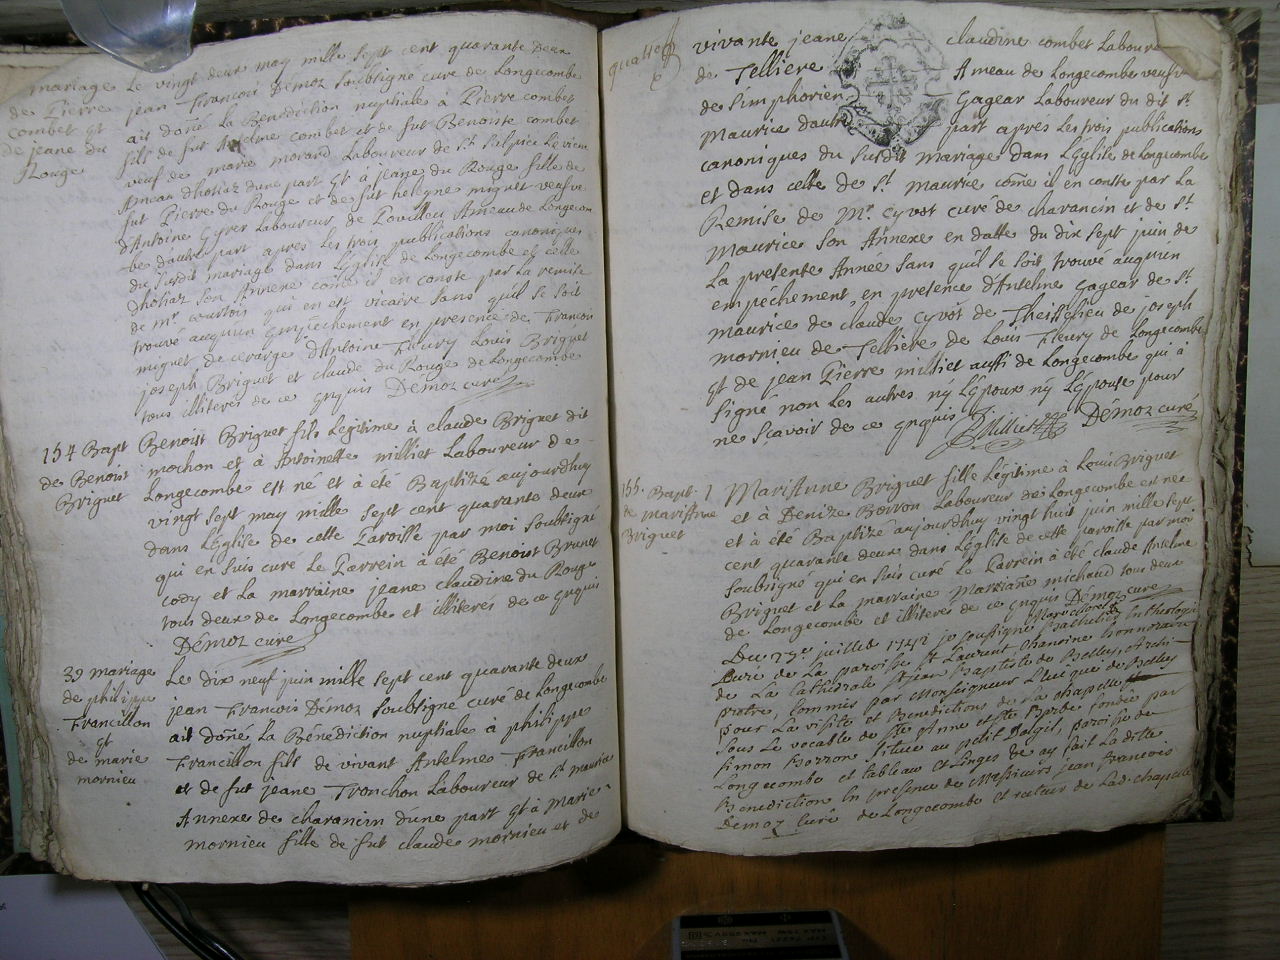 mariage
de Pierre
combet et
de jeane du
Rouge
Le vingt deux may mille sept cent quarante deux
jean François Démoz soubsigné curé de Longecombe
ait doñé la Bénédiction nuptiale à Pierre combet
fils de fut Antelme combet et de fut Benoiste combet
veuf de marie morand Laboureur de St Sulpice Le vieu
Ameau dhotiaz dune part Et à jeane du Rouge fille de
fut Pierre du Rouge et de fut heleyne miguet veufve
d'Antoine Gyrer Laboureur de Pouilleu Ameau de Longecom
be dautre part apres les trois publications canoniques
du Susdit mariage dans L'Eglise de Longecombe et celle
Dhotiaz son Annexe coñe il en conste par La remise
de mr courtois qui en est vicaire sans quil se soit
trouvé auquun Empéchement en presence de François
miguet de d'Antoine Fleury Louis Briguet
joseph Briguet et claude du Rouge de Longecombe
tous illiterés de ce Enquis Démoz curé
157 Bapt
de Benoist
Briguet
Benoist Briguet fils Légitime à claude Briguet dit
mochon et à Antoinette milliet Laboureur de
Longecombe est né et à été Baptizé aujourdhuy
vingt sept may mille sept cent quarante deux
dans L'Eglise de cette Paroisse par moi soubsigné
qui en suis curé Le Parrein à été Benoist Brunet
cody et La marraine jeane claudine du Rouge
tous deux de Longecombe et illiterés de ce Enquis
Démoz curé
39 mariage
de philippe
Francillon
Et
de marie
mornieu
Le dix neuf juin mille sept cent quarante deux
jean François Démoz soubsigné curé de Longecombe
ait doñé La Bénédiction nuptiale à philippe
Francillon fils de vivant Antelme Francillon
et de fut jeane Tronchon Laboureur de St maurice
Annexe de charancin dune part Et à Marie
mornieu fille de fut claude mornieu et de
quatre
vivante jeane claudine combet Laboure
de Tellière Ameau de Longecombe veufv
de Simphorien Gagear Laboureur du dit St
maurice dautre part après Les trois publications
canoniques du Susdit mariage dans L'Eglise de Longecombe
et dans celle de St maurice coñe il en conste par La
Remise de Mr cyvot curé de charancin et de St
maurice son Annexe en datte du dix sept juin de
La présente Année sans quil se soit trouvé auquun
empéchement, en presence d'Antelme Gagear de St
maurice de claude cyvot de de joseph
mornieu de Tellière de Louis Fleury de Longecombe
Et de jean Pierre milliet aussi de Longecombe qui à
signé non Les autres ny L'Epoux ny L'Epouse pour
ne scavoir de ce Enquis Milliet Démoz curé
155. Bapt
de mariAnne
Briguet
MariAnne Briguet fille Légitime à Louis Briguet
et à Denize Borron Laboureur de Longecombe est née
et à été Baptizé aujourdhuy vingt huit juin mille sept
cent quarante deux dans L'Eglise de cette paroisse par moi
soubsigné qui en suis curé Le Parrein à été claude Antelme
Briguet et La marraine Marriane michaud tous deux
de Longecombe et illiterés de ce Enquis Démoz curé
Du juillet 1742 je soussigné Bachelier En théologie
Curé de La paroisse St Laurent chanoine honnoraire
de La Cathédrale St jean Baptiste de Belley, Archi-
prêtre, commis par Monseigneur L'Evêque de Belley
pour La visite et Benediction de La chapelle
sous Le vocable de Ste Anne et Ste Barbe fondée par
Simon Borron située au petit paroisse de
Longecombe et tableau et Linges de ay fait La ditte
Benediction En presence de Messieurs jean françois
Demoz Curé de Longecombe et recteur de Lad. chapelle